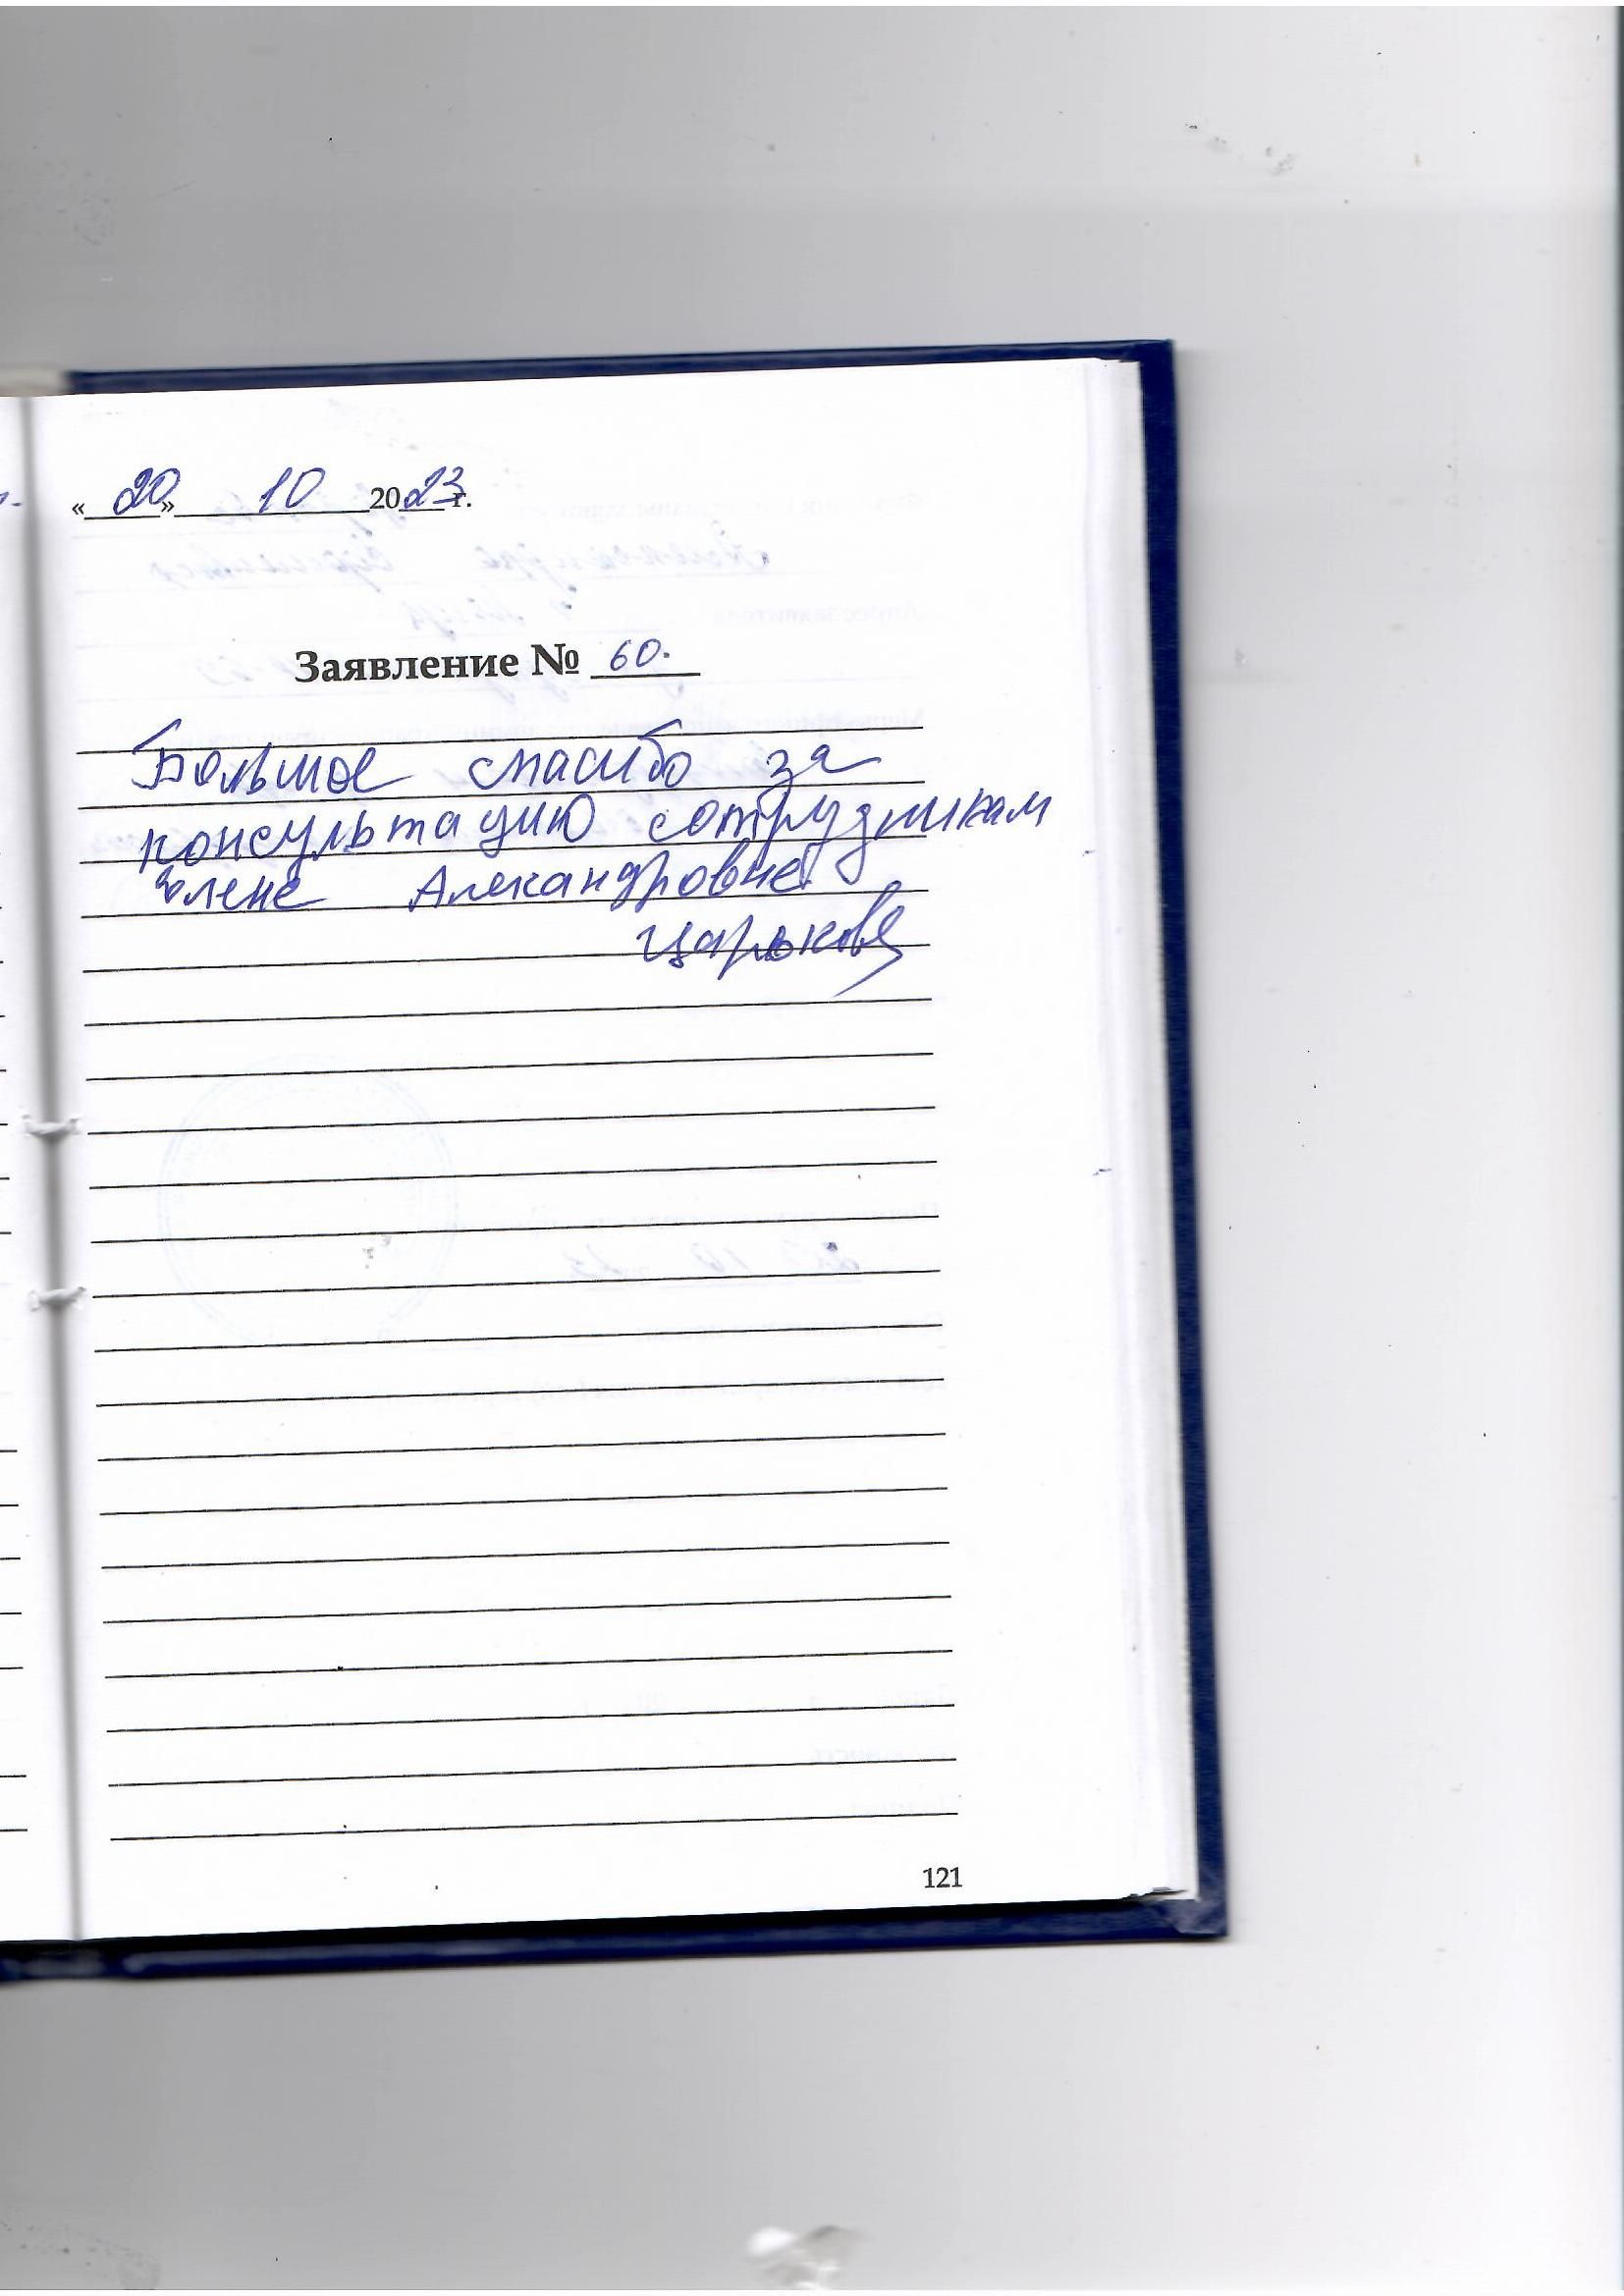 «20» 10 2023 г.
Заявление № 60.
Большое спасибо за
консультацию сотрудникам
Елене Александровне.
Царькова
121